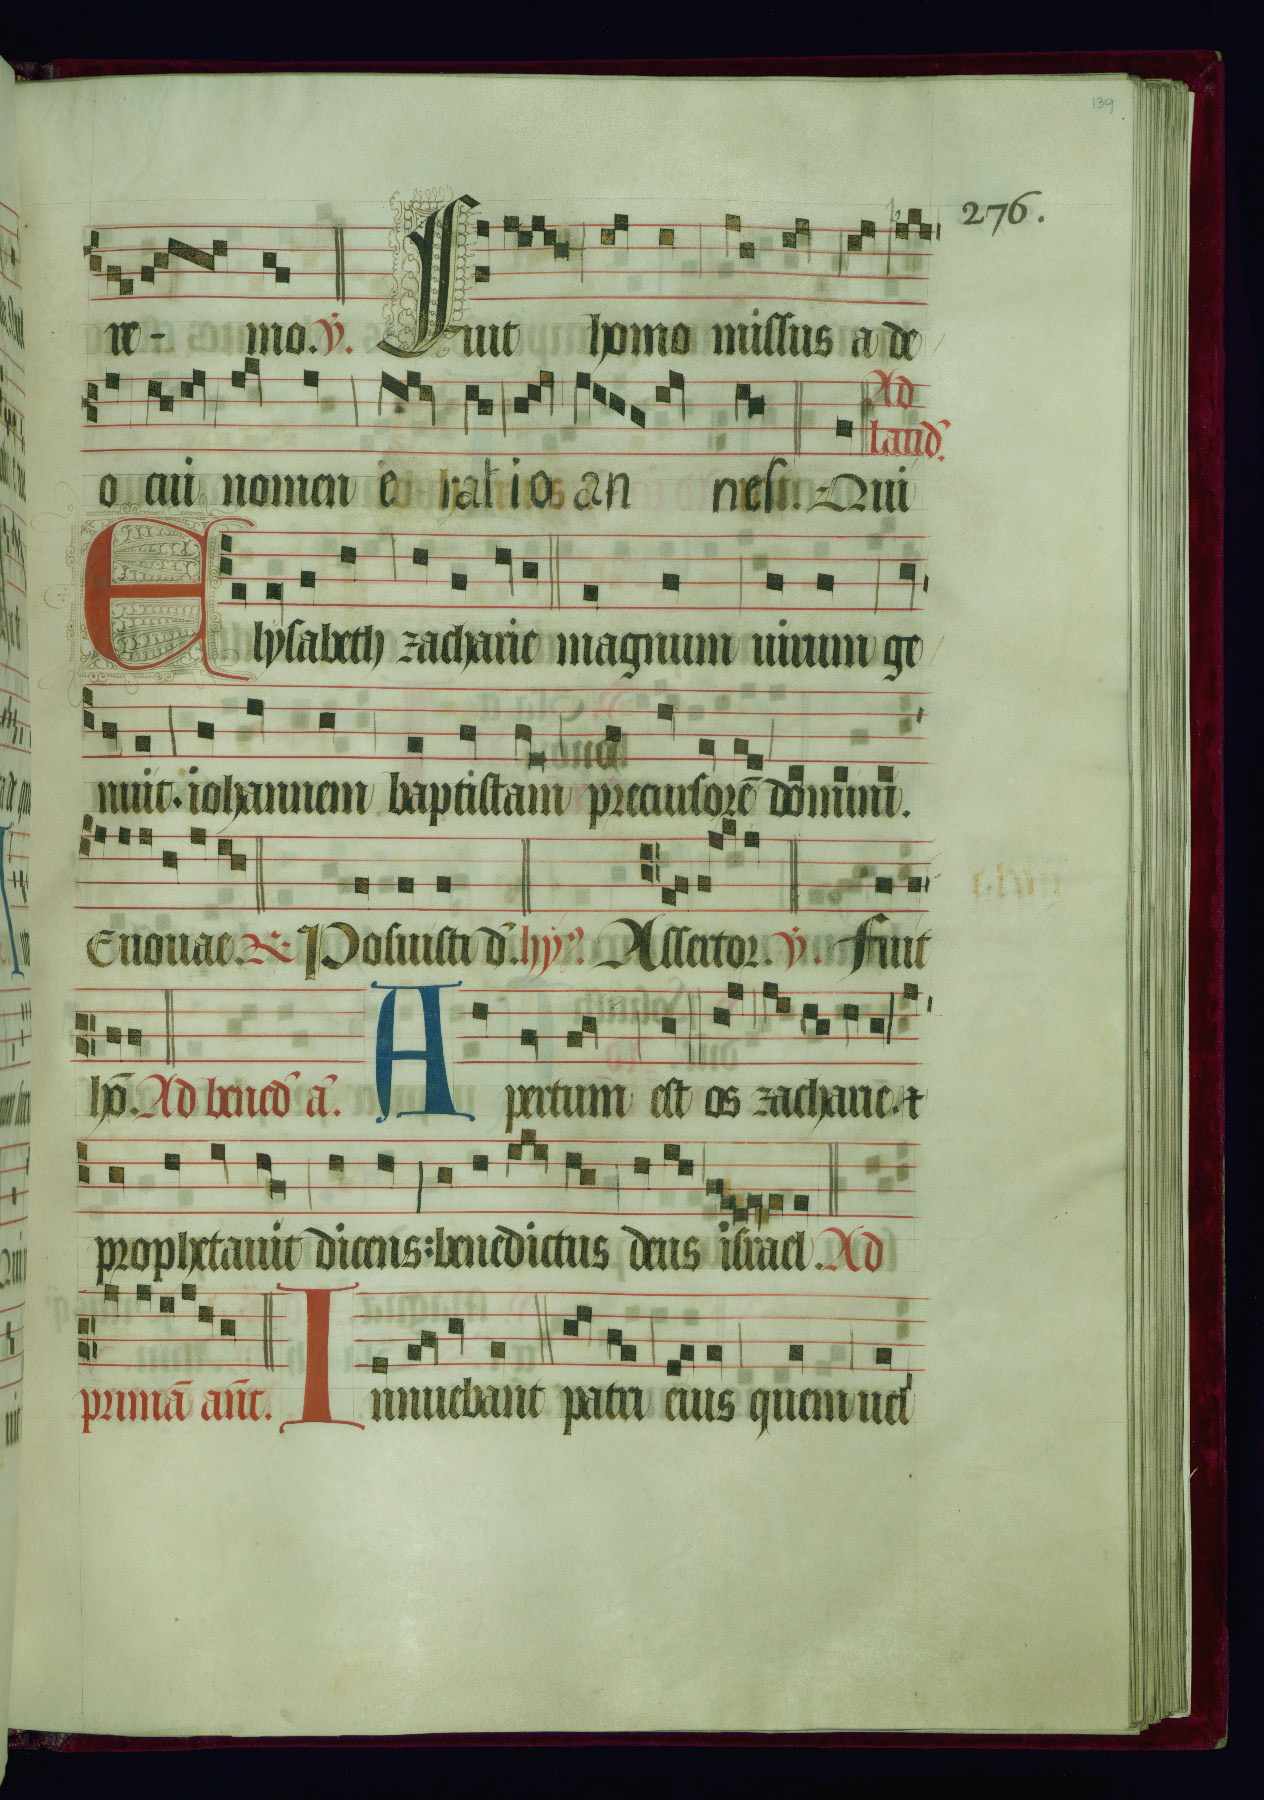 139
276.
re- mo. ℣. Fuit homo missus a de
o cui nomen e rat ioan nes. Qui
Ad
laud̄.
Elysabeth zacharie magnum uirum ge
nuit. iohannem baptistam precursorē domini.
Euouae. ℟. Posuisti d̄. hy̅9. Assertor. ℣. Fuit
hō. Ad bened̄ a̅. Apertum est os zacharie. ⁊
prophetauit dicens: benedictus deus israel. Ad
primā an̄t. Innuebant patri eius quem uel